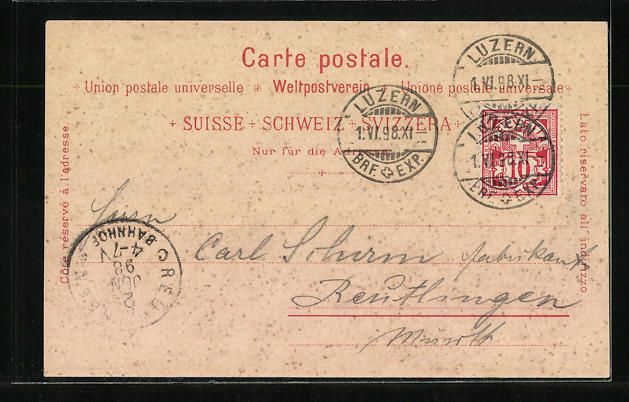 Carte postale.
Union postale universelle * Weltpostverein * Unione postale universale
SUISSE - SCHWEIZ - SVIZZERA
Nur für die
Côté réservé à l'adresse.
Lato riservato all'indirizzo
LUZERN
1.VI.98.XI
BRF. EXP.
LUZERN
1.VI.98.XI
LUZERN
1.VI.98.XI
BRF. EXP.
10
BAHNHOF
4-7
98
JUN
2
Herrn
Carl Schirm Fabrikant
Reutlingen
Württ